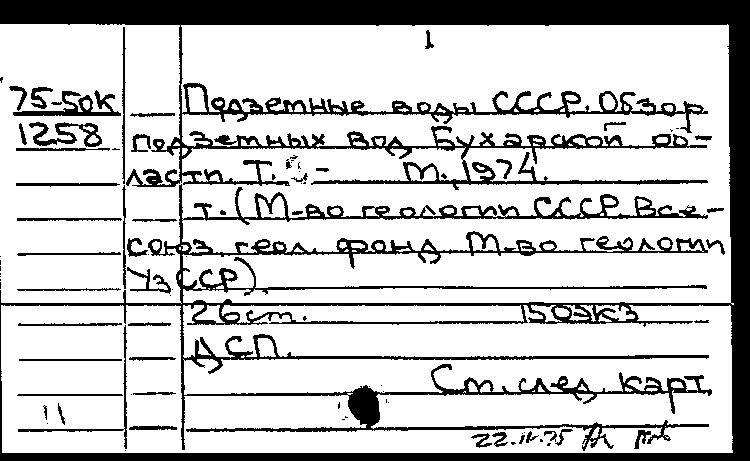 1
75-50К Подземные воды СССР. Обзор
1258 подземных вод Бухарской об-
ласти. Т. - М., 1974.
т. (М-во геологии СССР. Все-
союз. геол. фонд. М-во геологии
УзССР).
26см. 150экз.
ДСП.
См. след. карт.
11
22.IV.75